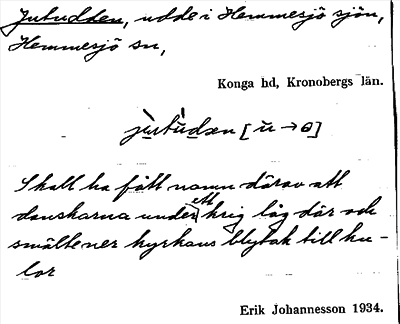 Jutudden, udde i Hemmesjö sjön,
Hemmesjö sn,
Konga hd, Kronobergs län.
jùtúdæn [u → ɵ]
Skall ha fått namn därav att
danskarna under ett krig låg där och
smälte ner kyrkans blytak till ku-
lor
Erik Johannesson 1934.